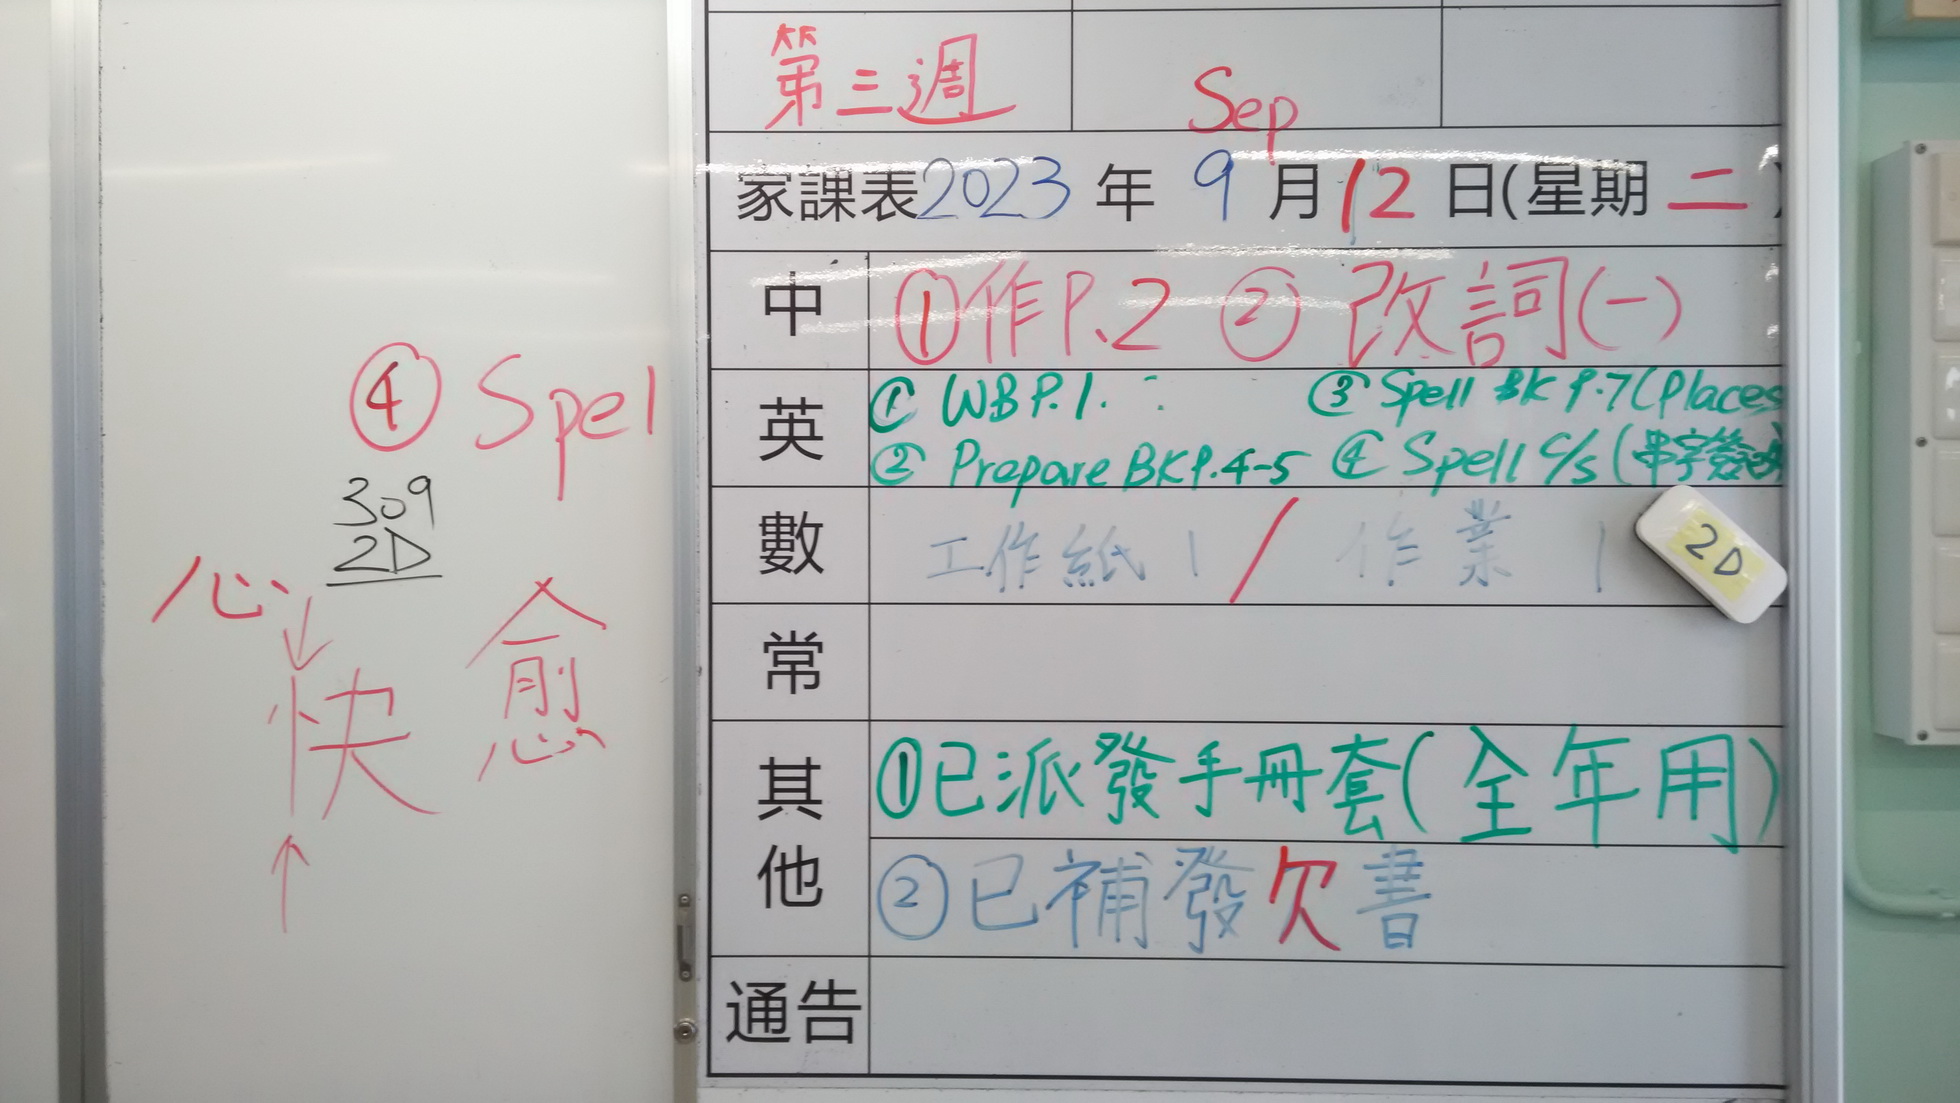 ④ Spel
309
2D
心
快 愈
第三週
Sep
家課表2023 年 9 月12 日(星期 二 )
中 ①作P.2 ② 改詞(一)
英 ① WB P.1. ③ Spell BK P.7 (Places
② Prepare BK P.4-5 ④ Spell C/S (串字簽
數 工作紙 1 / 作業 1
2D
常
其他 ①已派發手冊套(全年用)
②已補發欠書
通告